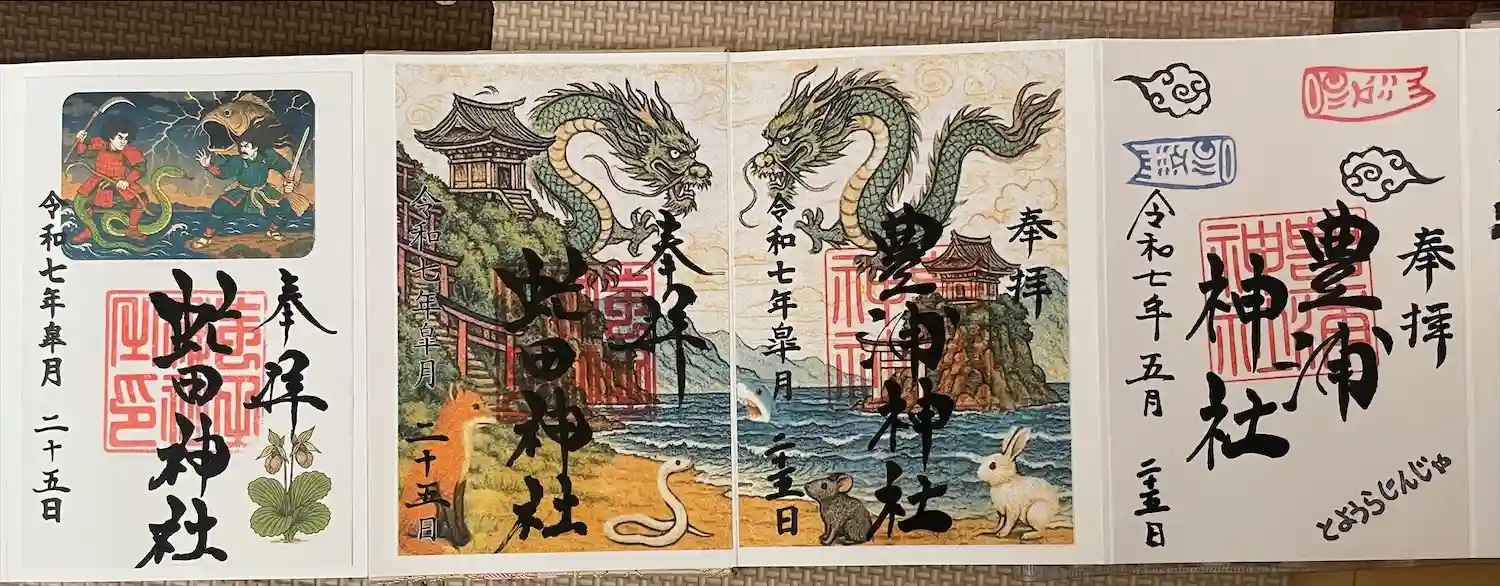 奉拝
虻田神社
令和七年皐月 二十五日
奉拝
虻田神社
令和七年皐月 二十五日
奉拝
豊浦神社
令和七年皐月 二十五日
奉拝
豊浦
神社
令和七年五月 二十五日
とようらじんじゃ